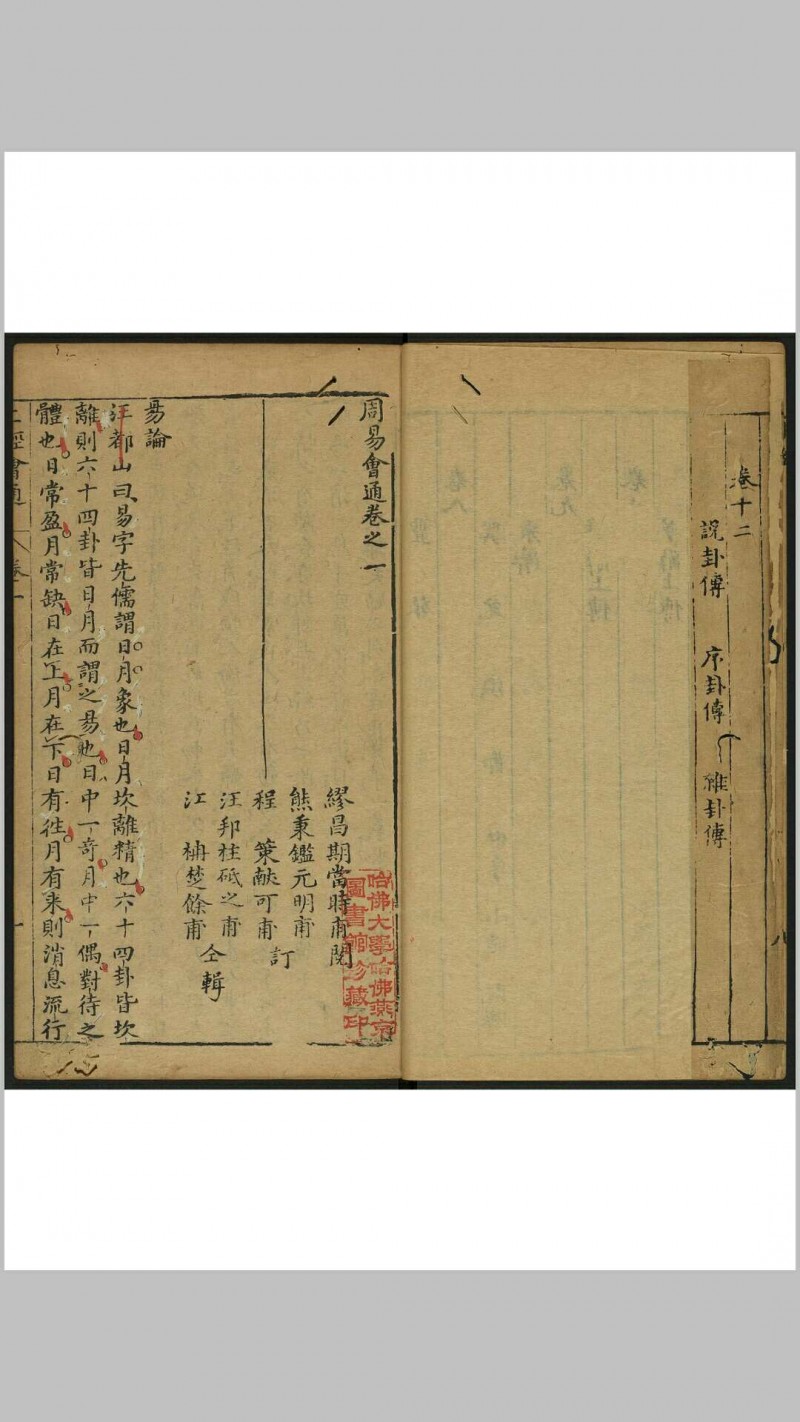 卷十二
說卦傳 序卦傳 雜卦傳
周易會通卷之一
繆昌期當時甫閱
熊秉鑑元明甫
程 策献可甫 訂
汪邦柱砥之甫
江 柟楚餘甫 仝輯
易論
汪都山曰易字先儒謂日月象也日月坎離精也六十四卦皆坎
離則六十四卦皆日月而謂之易也日中一奇月中一偶對待之
體也日常盈月常缺日在上月在下日有往月有來則消息流行
上經會通 卷一 一
哈佛大學哈佛燕京
圖書館珍藏印